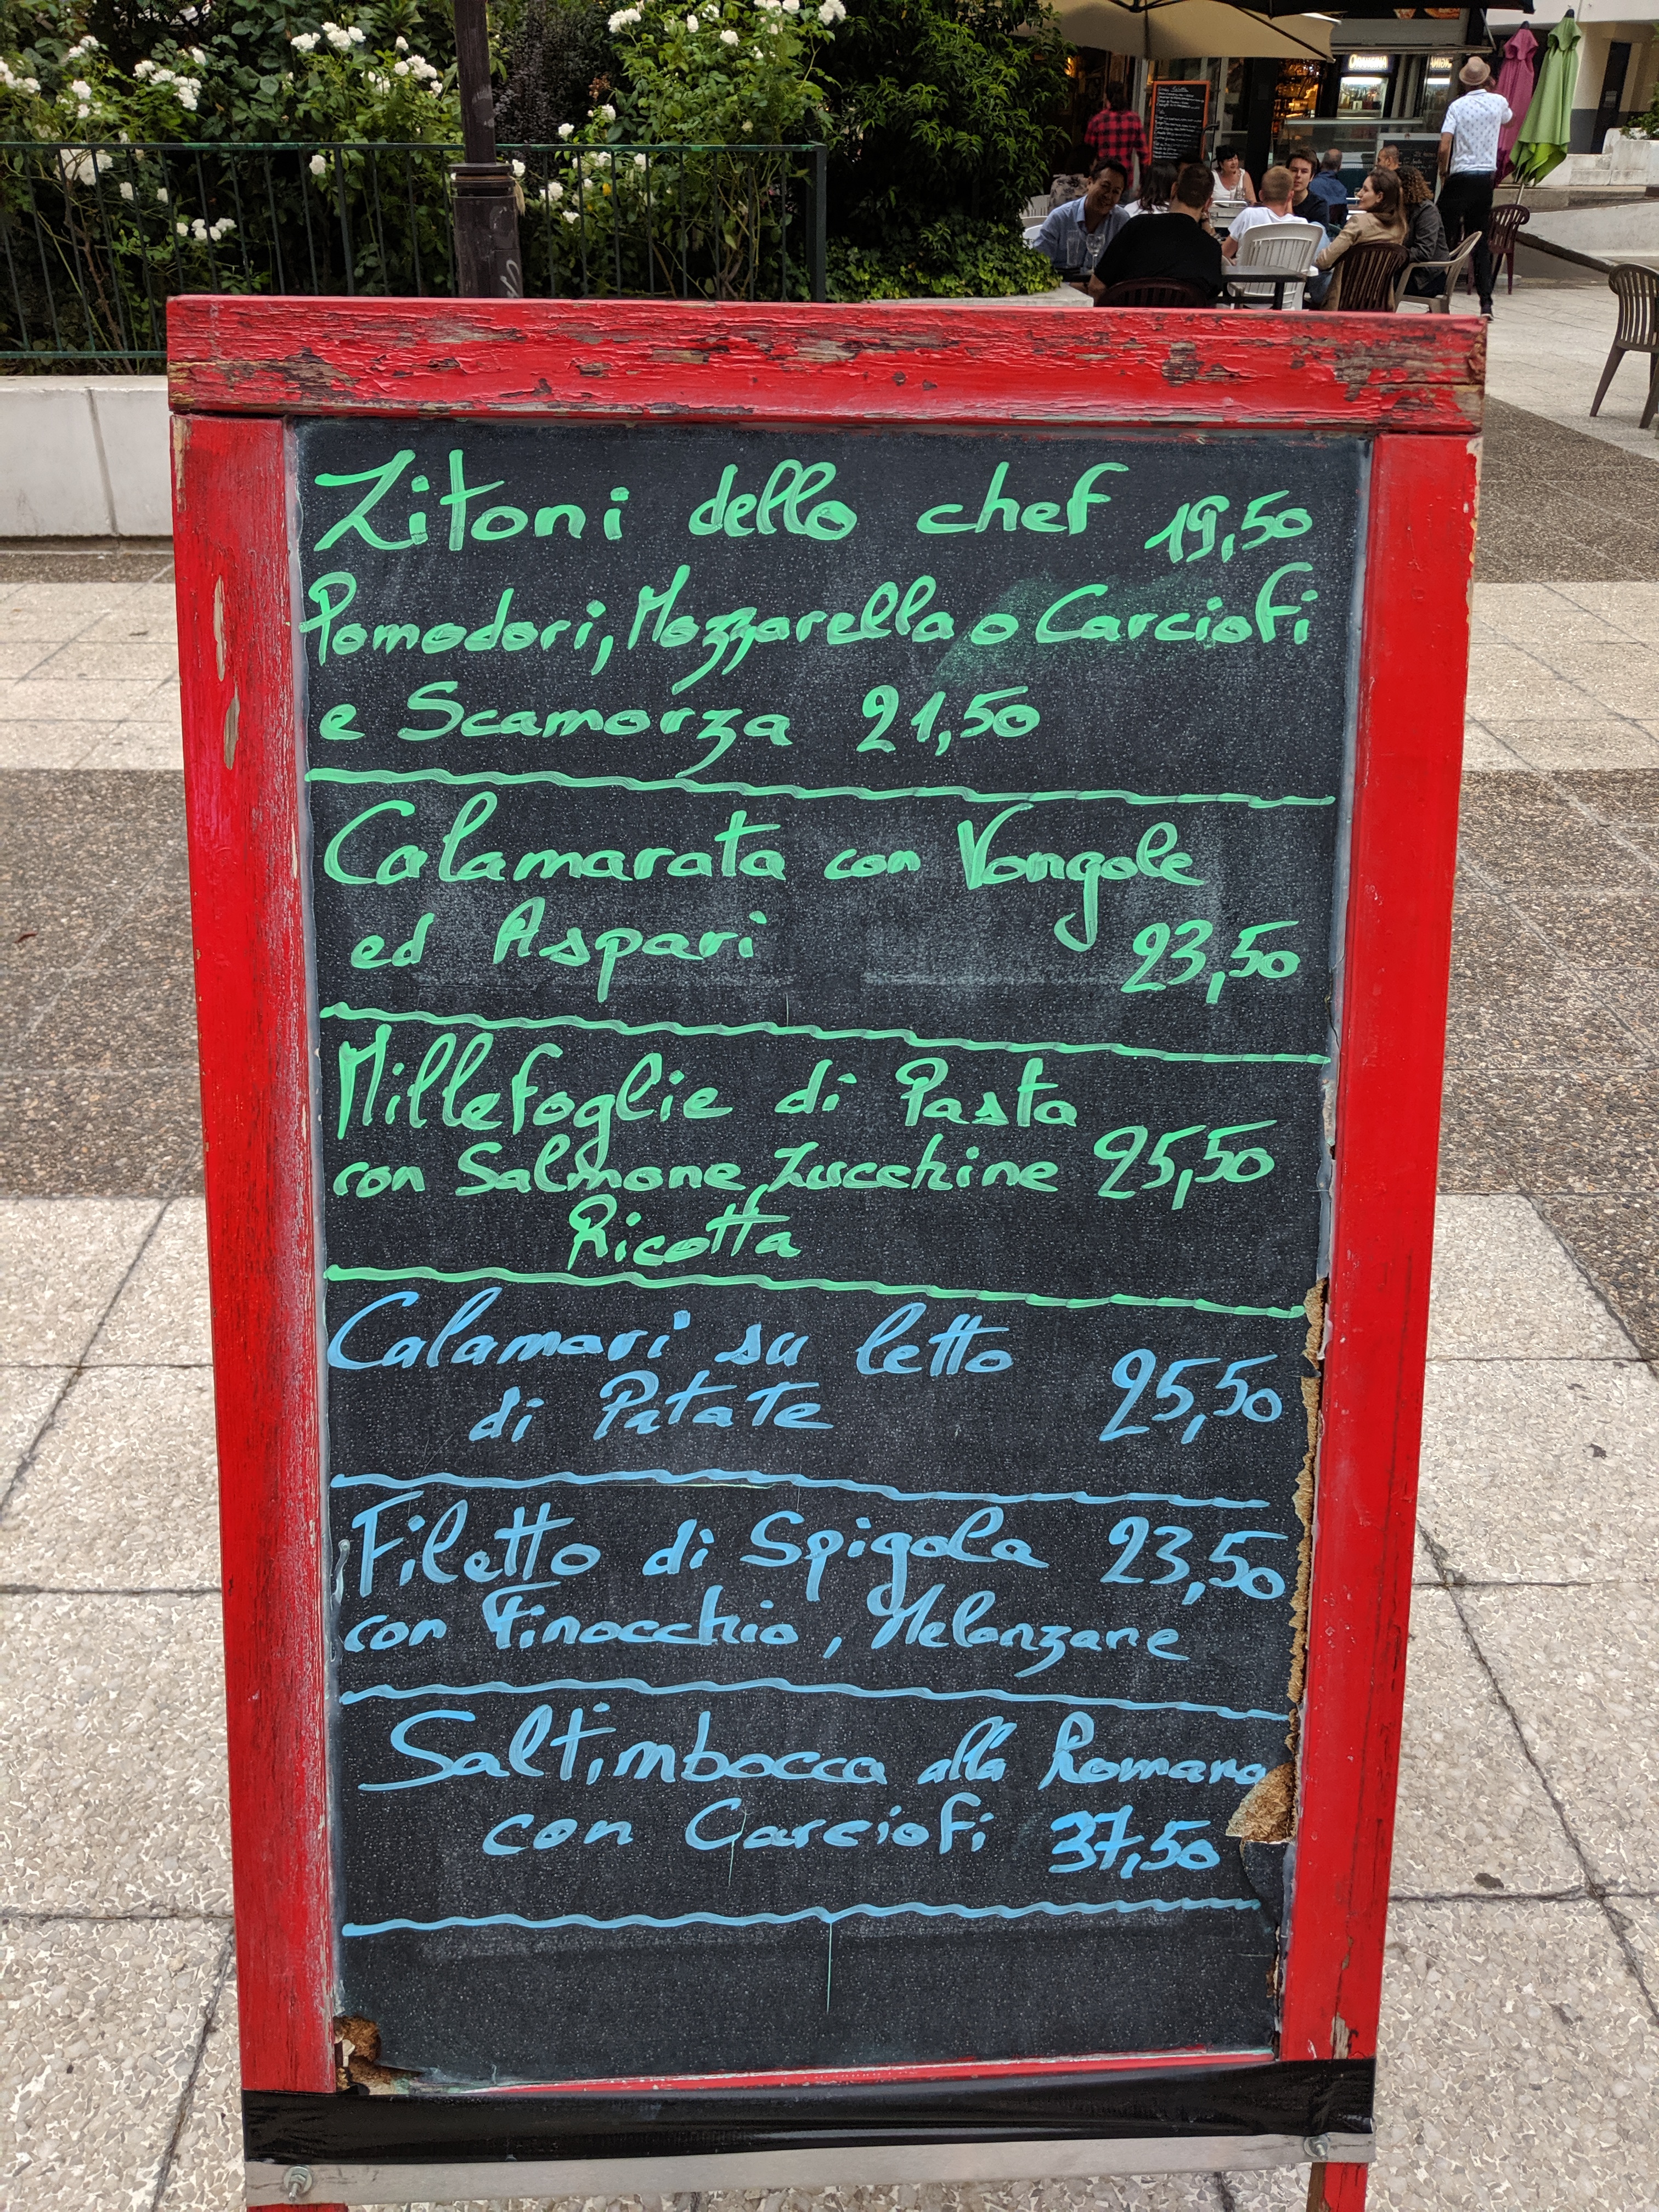 Zitoni dello chef 19,50
Pomodori, Mozzarella o Carciofi
e Scamorza 21,50
Calamarata con Vongole
ed Aspari 23,50
Millefoglie di Pasta
con Salmone, Zucchine 25,50
Ricotta
Calamari su letto
di Patate 25,50
Filetto di Spigola 23,50
con Finocchio, Melanzane
Saltimbocca alla Romana
con Carciofi 37,50